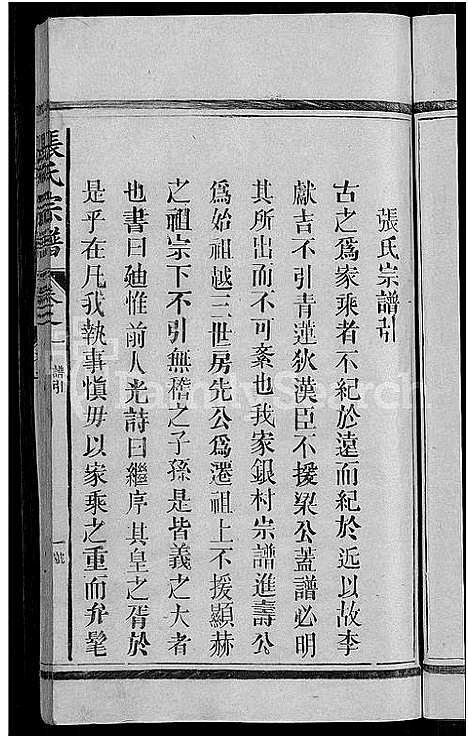 張氏宗譜引
古之爲家乘者不紀於遠而紀於近以故李
獻吉不引青蓮狄漢臣不援梁公蓋譜必明
其所出而不可紊也我家銀村宗譜進壽公
爲始祖越三世房先公爲遷祖上不援顯赫
之祖宗下不引無稽之子孫是皆義之大者
也書曰廸惟前人光詩曰繼序其皇之胥於
是乎在凡我執事愼毋以家乘之重而弁髦
張氏宗譜
卷之一
譜引
FamilySearch